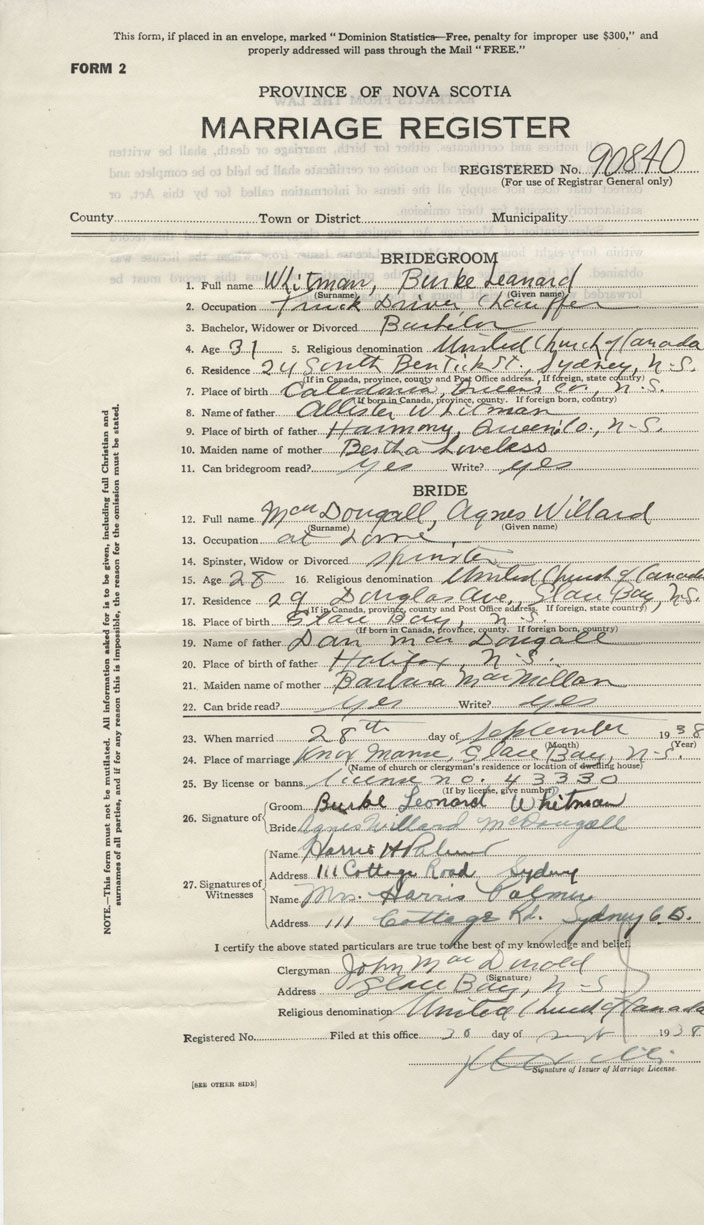 This form, if placed in an envelope, marked "Dominion Statistics—Free, penalty for improper use $300," and
properly addressed will pass through the Mail "FREE."
FORM 2
PROVINCE OF NOVA SCOTIA
MARRIAGE REGISTER
REGISTERED No. 90840
(For use of Registrar General only)
County Town or District Municipality
BRIDEGROOM
1. Full name Whitman, Burke Leanard
(Surname) (Given name)
2. Occupation Truck Driver, Chauffer
3. Bachelor, Widower or Divorced Bachelor
4. Age 31 5. Religious denomination United Church of Canada
6. Residence 24 South Bentick St., Sydney, N.S.
(If in Canada, province, county and Post Office address. If foreign, state country)
7. Place of birth Caledonia, Queens Co., N.S.
(If born in Canada, province, county. If foreign born, country)
8. Name of father Allister Whitman
9. Place of birth of father Harmony, Queen Co., N.S.
10. Maiden name of mother Bertha Loveless
11. Can bridegroom read? yes Write? yes
BRIDE
12. Full name MacDougall, Agnes Willard
(Surname) (Given name)
13. Occupation at home
14. Spinster, Widow or Divorced spinster
15. Age 28 16. Religious denomination United Church of Canada
17. Residence 29 Douglas Ave., Glace Bay, N.S.
(If in Canada, province, county and Post Office address. If foreign, state country)
18. Place of birth Glace Bay, N.S.
(If born in Canada, province, county. If foreign born, country)
19. Name of father Dan MacDougall
20. Place of birth of father Halifax, N.S.
21. Maiden name of mother Barbara MacMillan
22. Can bride read? yes Write? yes
23. When married 28th day of September 1938
(Month) (Year)
24. Place of marriage Knox Manse, Glace Bay, N.S.
(Name of church or clergyman's residence or location of dwelling house)
25. By license or banns license no. 43330
(If by license, give number)
26. Signature of Groom Burke Leonard Whitman
Bride Agnes Willard McDougall
27. Signatures of Witnesses
Name Harris H Palmer
Address 111 Cottage Road Sydney
Name Mrs. Harris Palmer
Address 111 Cottage Rd. Sydney C.B.
I certify the above stated particulars are true to the best of my knowledge and belief.
Clergyman John MacDonald
(Signature)
Address Glace Bay, N-S
Religious denomination United Church of Canada
Registered No. Filed at this office 30 day of Sept 1938
Signature of Issuer of Marriage License.
[SEE OTHER SIDE]
NOTE.—This form must not be mutilated. All information asked for is to be given, including full Christian and
surnames of all parties, and if for any reason this is impossible, the reason for the omission must be stated.